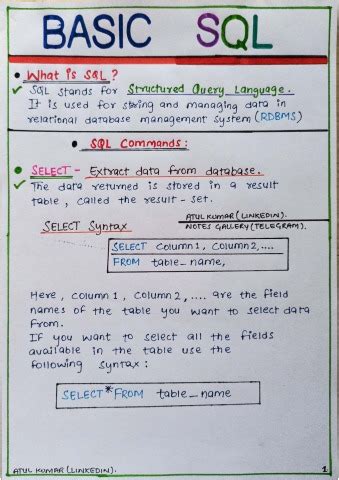 BASIC SQL
What is SQL ?
SQL stands for Structured Query Language.
It is used for storing and managing data in
relational database management system (RDBMS)
SQL Commands :
SELECT - Extract data from database.
The data returned is stored in a result
table, called the result-set.
ATUL KUMAR (LINKEDIN).
NOTES GALLERY (TELEGRAM).
SELECT Syntax
SELECT column1, column2,....
FROM table_name,
Here, column1, column2, .... are the field
names of the table you want to select data
from.
If you want to select all the fields
available in the table use the
following syntax :
SELECT * FROM table_name
ATUL KUMAR (LINKEDIN).
1